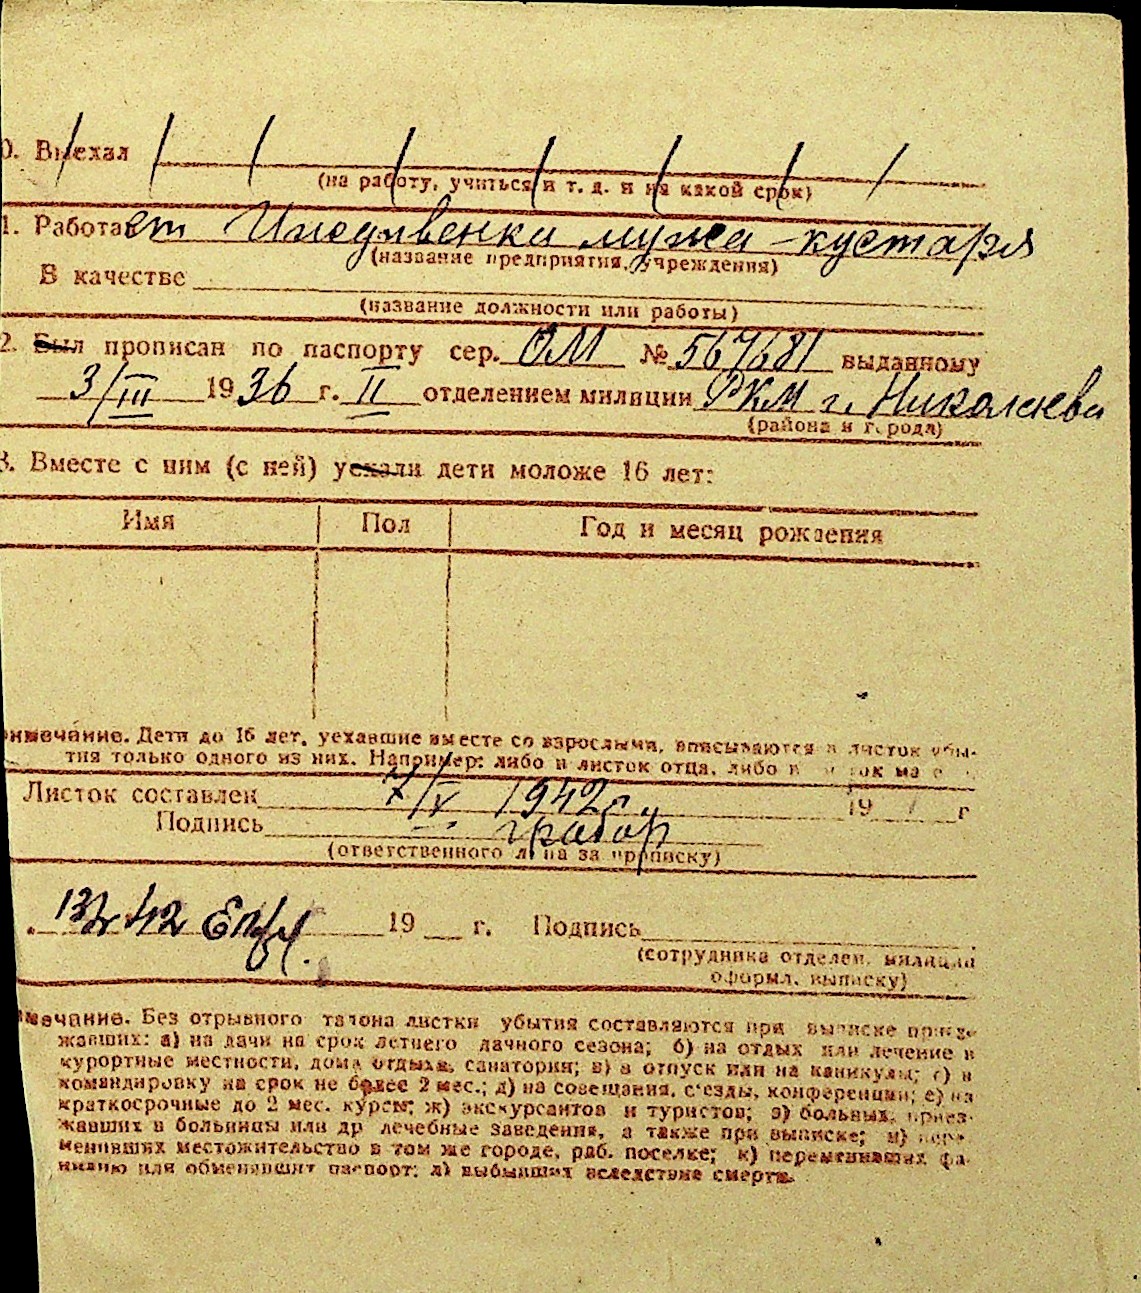 0. Выехал
(на работу, учиться и т. д. и на какой срок)
1. Работает Иждивенка мужа-кустаря
(название предприятия, учреждения)
В качестве
(название должности или работы)
2. Был прописан по паспорту сер. ОМ № 567681 выданному
3/III 1936 г. II отделением милиции РКМ г. Николаева
(района и города)
3. Вместе с ним (с ней) уехали дети моложе 16 лет:
Имя Пол Год и месяц рождения
имечание. Дети до 16 лет, уехавшие вместе со взрослыми, вписываются в листок убы-
тия только одного из них. Например: либо в листок отца, либо в
Листок составлен 7/V 1942 г. 19 г
Подпись Грабор
(ответственного лица за прописку)
42 19 г. Подпись
(сотрудника отделен. милиции
оформл. выписку)
мечание. Без отрывного талона листки убытия составляются при выписке приез-
жавших: а) на дачи на срок летнего дачного сезона; б) на отдых или лечение в
курортные местности, дома отдыха, санатории; в) в отпуск или на каникулы; г) в
командировку на срок не более 2 мес.; д) на совещания, с'езды, конференции; е) на
краткосрочные до 2 мес. курсы; ж) экскурсантов и туристов; з) больных, приез-
жавших в больницы или др лечебные заведения, а также при выписке; и) пере-
менивших местожительство в том же городе, раб. поселке; к) переменивших фа-
милию или обменявших паспорт; л) выбывших вследствие смерти.